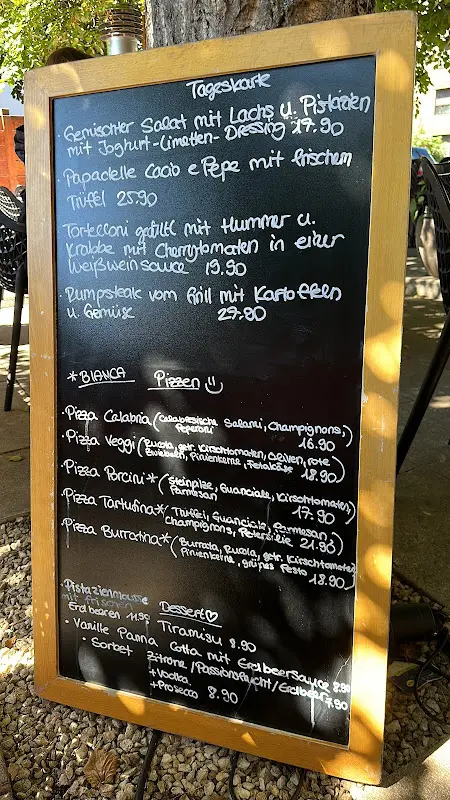 Tageskarte
Gemischter Salat mit Lachs u. Pistazien
mit Joghurt-Limetten-Dressing 17.90
Papadelle Cacio e Pepe mit frischem
Trüfel 25.90
Tortelloni gefüllt mit Hummer u.
Krabbe mit Cherrytomaten in einer
Weißweinsauce 19.90
Rumpsteak vom Grill mit Kartoffeln
u. Gemüse 27.90
*BIANCA Pizzen
Pizza Calabria (Calabresische Salami, Champignons,
Peperoni) 16.90
Pizza Veggi (Rucola, getr. Kirschtomaten, Oliven, rote
Zwiebeln, Pinienkerne, Fetakäse) 18.90
Pizza Porcini* (Steinpilze, Guanciale, Kirschtomaten,
Parmesan) 17.90
Pizza Tartufina* (Trüffel, Guanciale, Parmesan,
Champignons, Petersilie) 21.90
Pizza Burratina* (Burrata, Rucola, getr. Kirschtomaten,
Pinienkerne, grünes Pesto) 18.90
Pistazienmousse
mit frischen
Erdbeeren 11.90
Dessert
Tiramisu 8.90
Vanille Panna Cotta mit Erdbeersauce 8.90
Sorbet Zitrone/Passionsfrucht/Erdbeer 7.90
+Vodka
+Prosecco 8.90